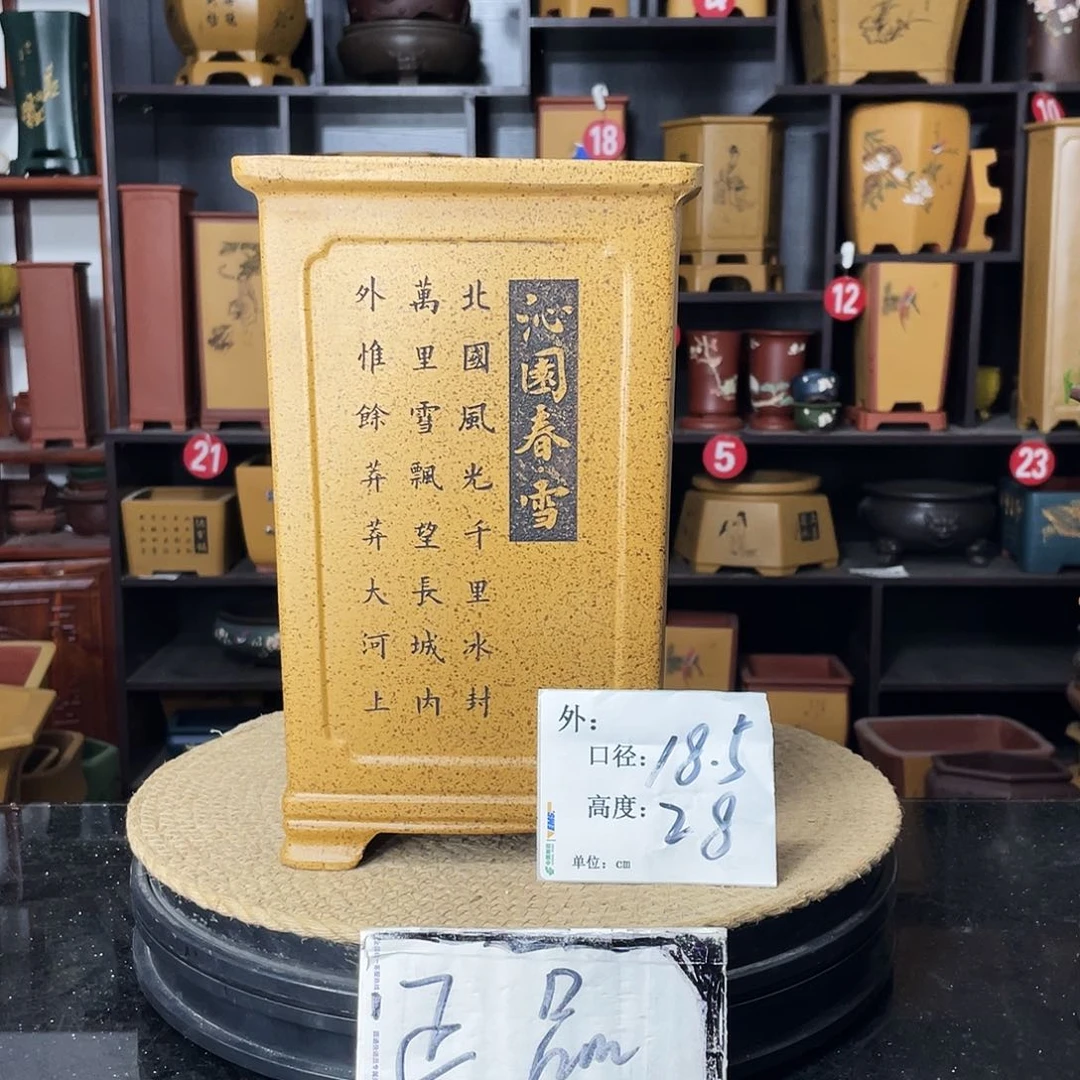 沁園春·雪
北國風光千里冰封
萬里雪飄望長城内
外惟餘莽莽大河上
外：
口径：18.5
高度：28
单位：cm
正品
18
10
12
21
5
23
EMS